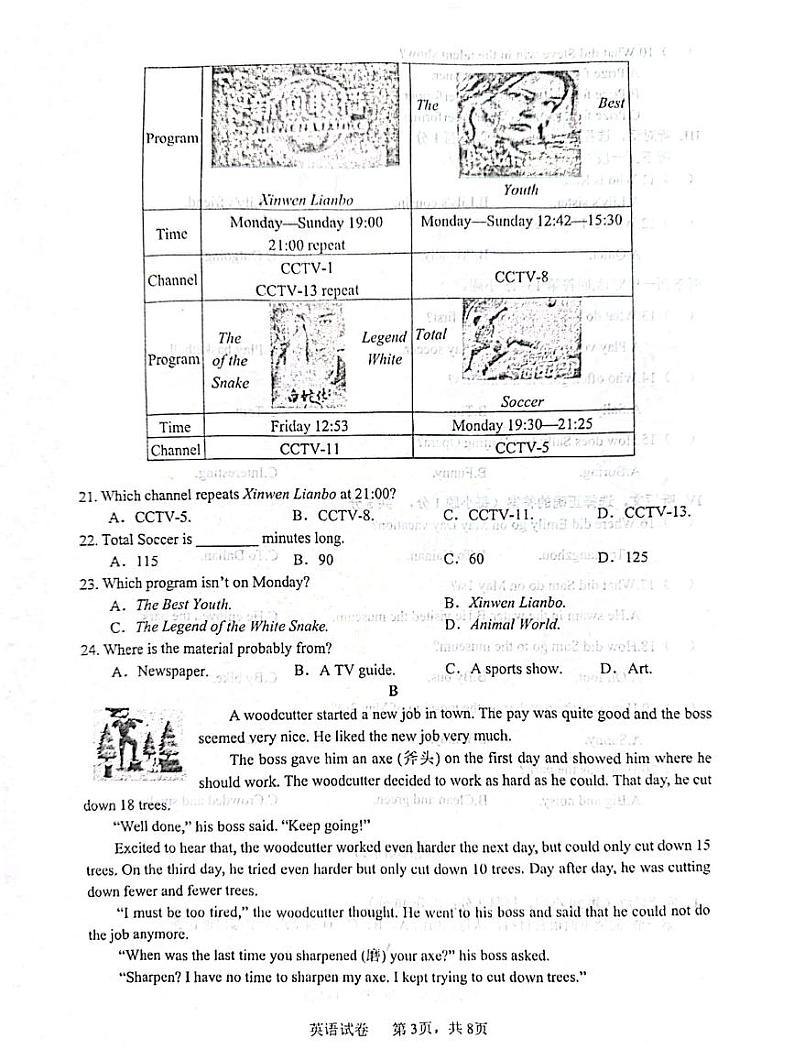 Program
Xinwen Lianbo
The Best
Youth
Time
Monday—Sunday 19:00
21:00 repeat
Monday—Sunday 12:42—15:30
Channel
CCTV-1
CCTV-13 repeat
CCTV-8
Program
The Legend
of the White
Snake
白蛇传
Total
Soccer
Time
Friday 12:53
Monday 19:30—21:25
Channel
CCTV-11
CCTV-5
21. Which channel repeats Xinwen Lianbo at 21:00?
A. CCTV-5. B. CCTV-8. C. CCTV-11. D. CCTV-13.
22. Total Soccer is ________ minutes long.
A. 115 B. 90 C. 60 D. 125
23. Which program isn't on Monday?
A. The Best Youth. B. Xinwen Lianbo.
C. The Legend of the White Snake. D. Animal World.
24. Where is the material probably from?
A. Newspaper. B. A TV guide. C. A sports show. D. Art.
B
A woodcutter started a new job in town. The pay was quite good and the boss
seemed very nice. He liked the new job very much.
The boss gave him an axe (斧头) on the first day and showed him where he
should work. The woodcutter decided to work as hard as he could. That day, he cut
down 18 trees.
“Well done,” his boss said. “Keep going!”
Excited to hear that, the woodcutter worked even harder the next day, but could only cut down 15
trees. On the third day, he tried even harder but only cut down 10 trees. Day after day, he was cutting
down fewer and fewer trees.
“I must be too tired,” the woodcutter thought. He went to his boss and said that he could not do
the job anymore.
“When was the last time you sharpened (磨) your axe?” his boss asked.
“Sharpen? I have no time to sharpen my axe. I kept trying to cut down trees.”
英语试卷 第3页，共8页